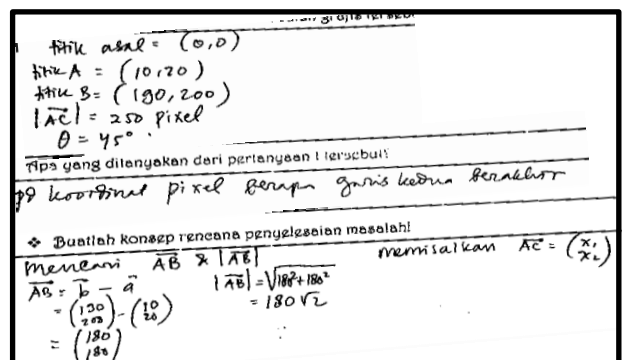 titik asal = (0,0)
titik A = (10,20)
titik B = (190,200)
|AC| = 250 pixel
θ = 45°.
Apa yang ditanyakan dari pertanyaan tersebut?
koordinat pixel berapa garis kedua berakhir
❖ Buatlah konsep rencana penyelesaian masalah!
mencari AB & |AB|
memisalkan AC = (x₁ x₂)
AB = b - a
|AB| = √180²+180²
= (190 200) - (10 20)
= 180√2
= (180 180)